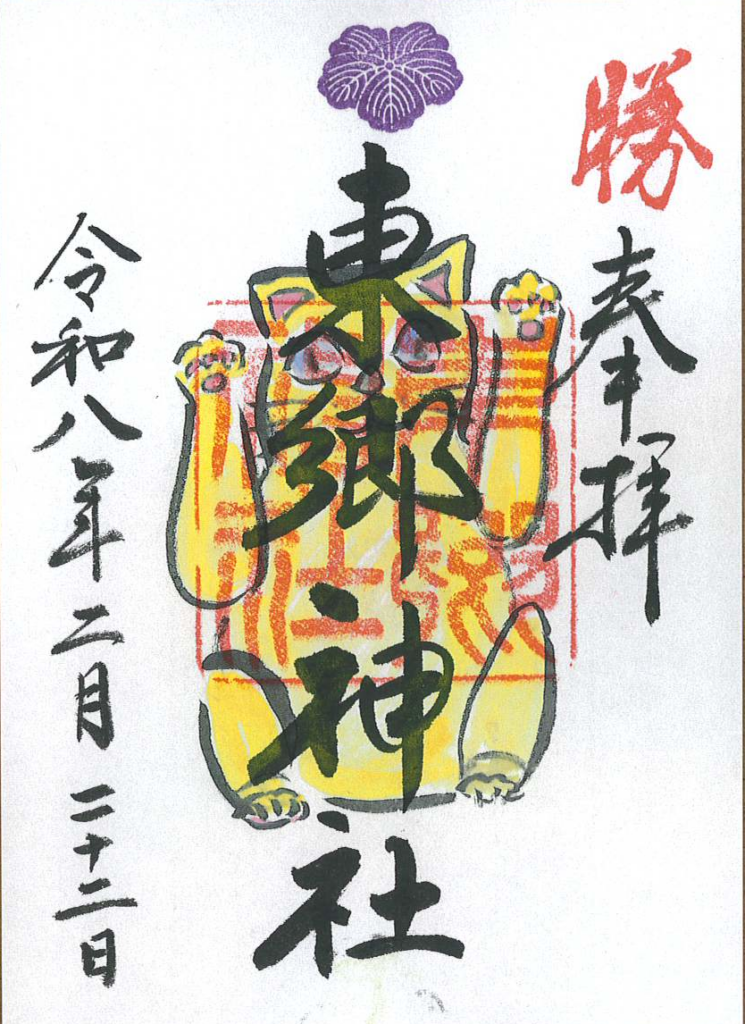 勝
奉拝
東郷神社
令和八年二月二十二日